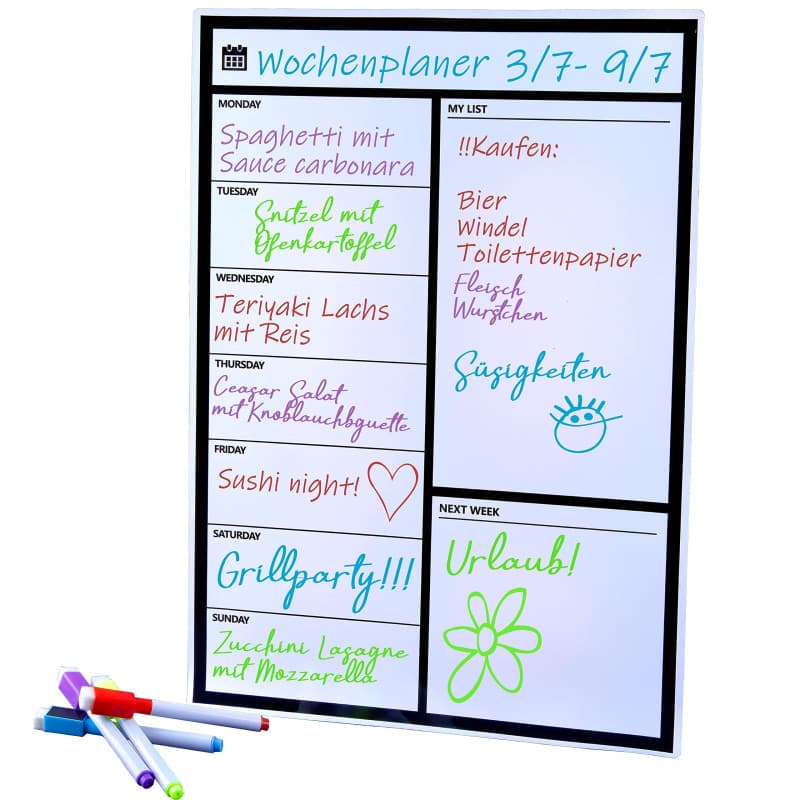 Wochenplaner 3/7- 9/7
MONDAY
Spaghetti mit
Sauce carbonara
TUESDAY
Snitzel mit
Ofenkartoffel
WEDNESDAY
Teriyaki Lachs
mit Reis
THURSDAY
Ceasar Salat
mit Knoblauchbguette
FRIDAY
Sushi night!
SATURDAY
Grillparty!!!
SUNDAY
Zucchini Lasagne
mit Mozzarella
MY LIST
!!Kaufen:
Bier
Windel
Toilettenpapier
Fleisch
Wurstchen
Süsigkeiten
NEXT WEEK
Urlaub!